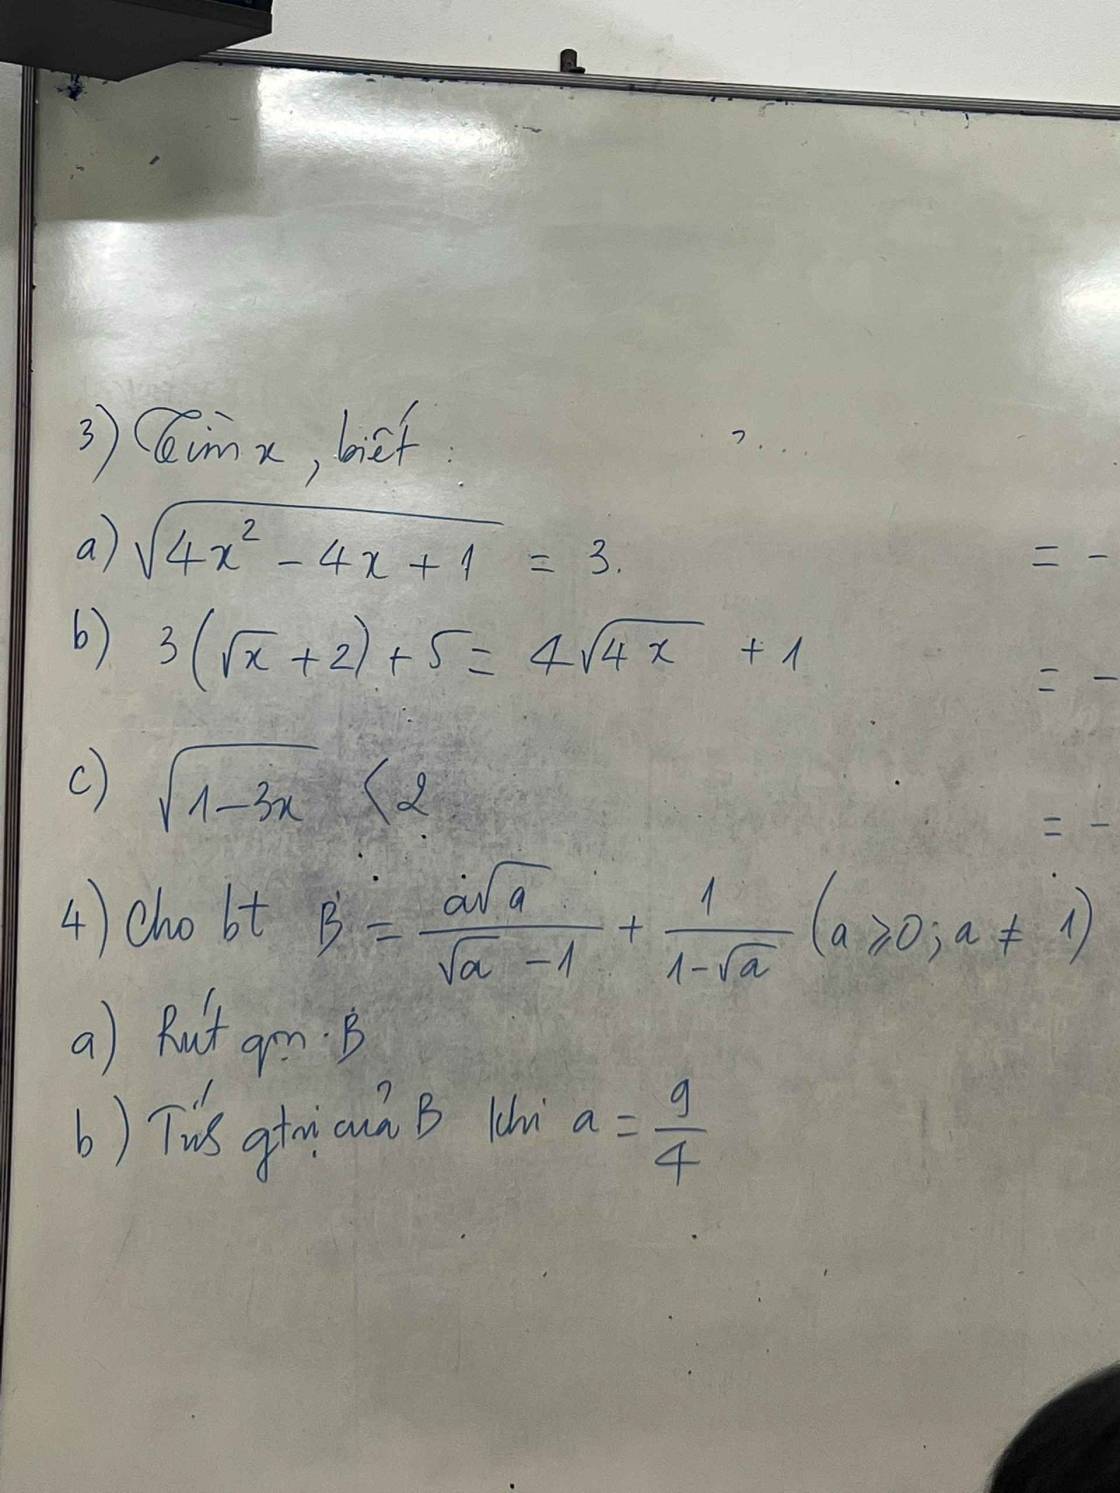 3) Tìm x, biết :
a) √(4x² - 4x + 1) = 3.
b) 3(√x + 2) + 5 = 4√(4x) + 1
c) √(1-3x) < 2
4) Cho bt B = (a√a)/(√a - 1) + 1/(1-√a) (a ⩾ 0; a ≠ 1)
a) Rút gọn B
b) Tính gtrị của B khi a = 9/4
= -
= -
= -